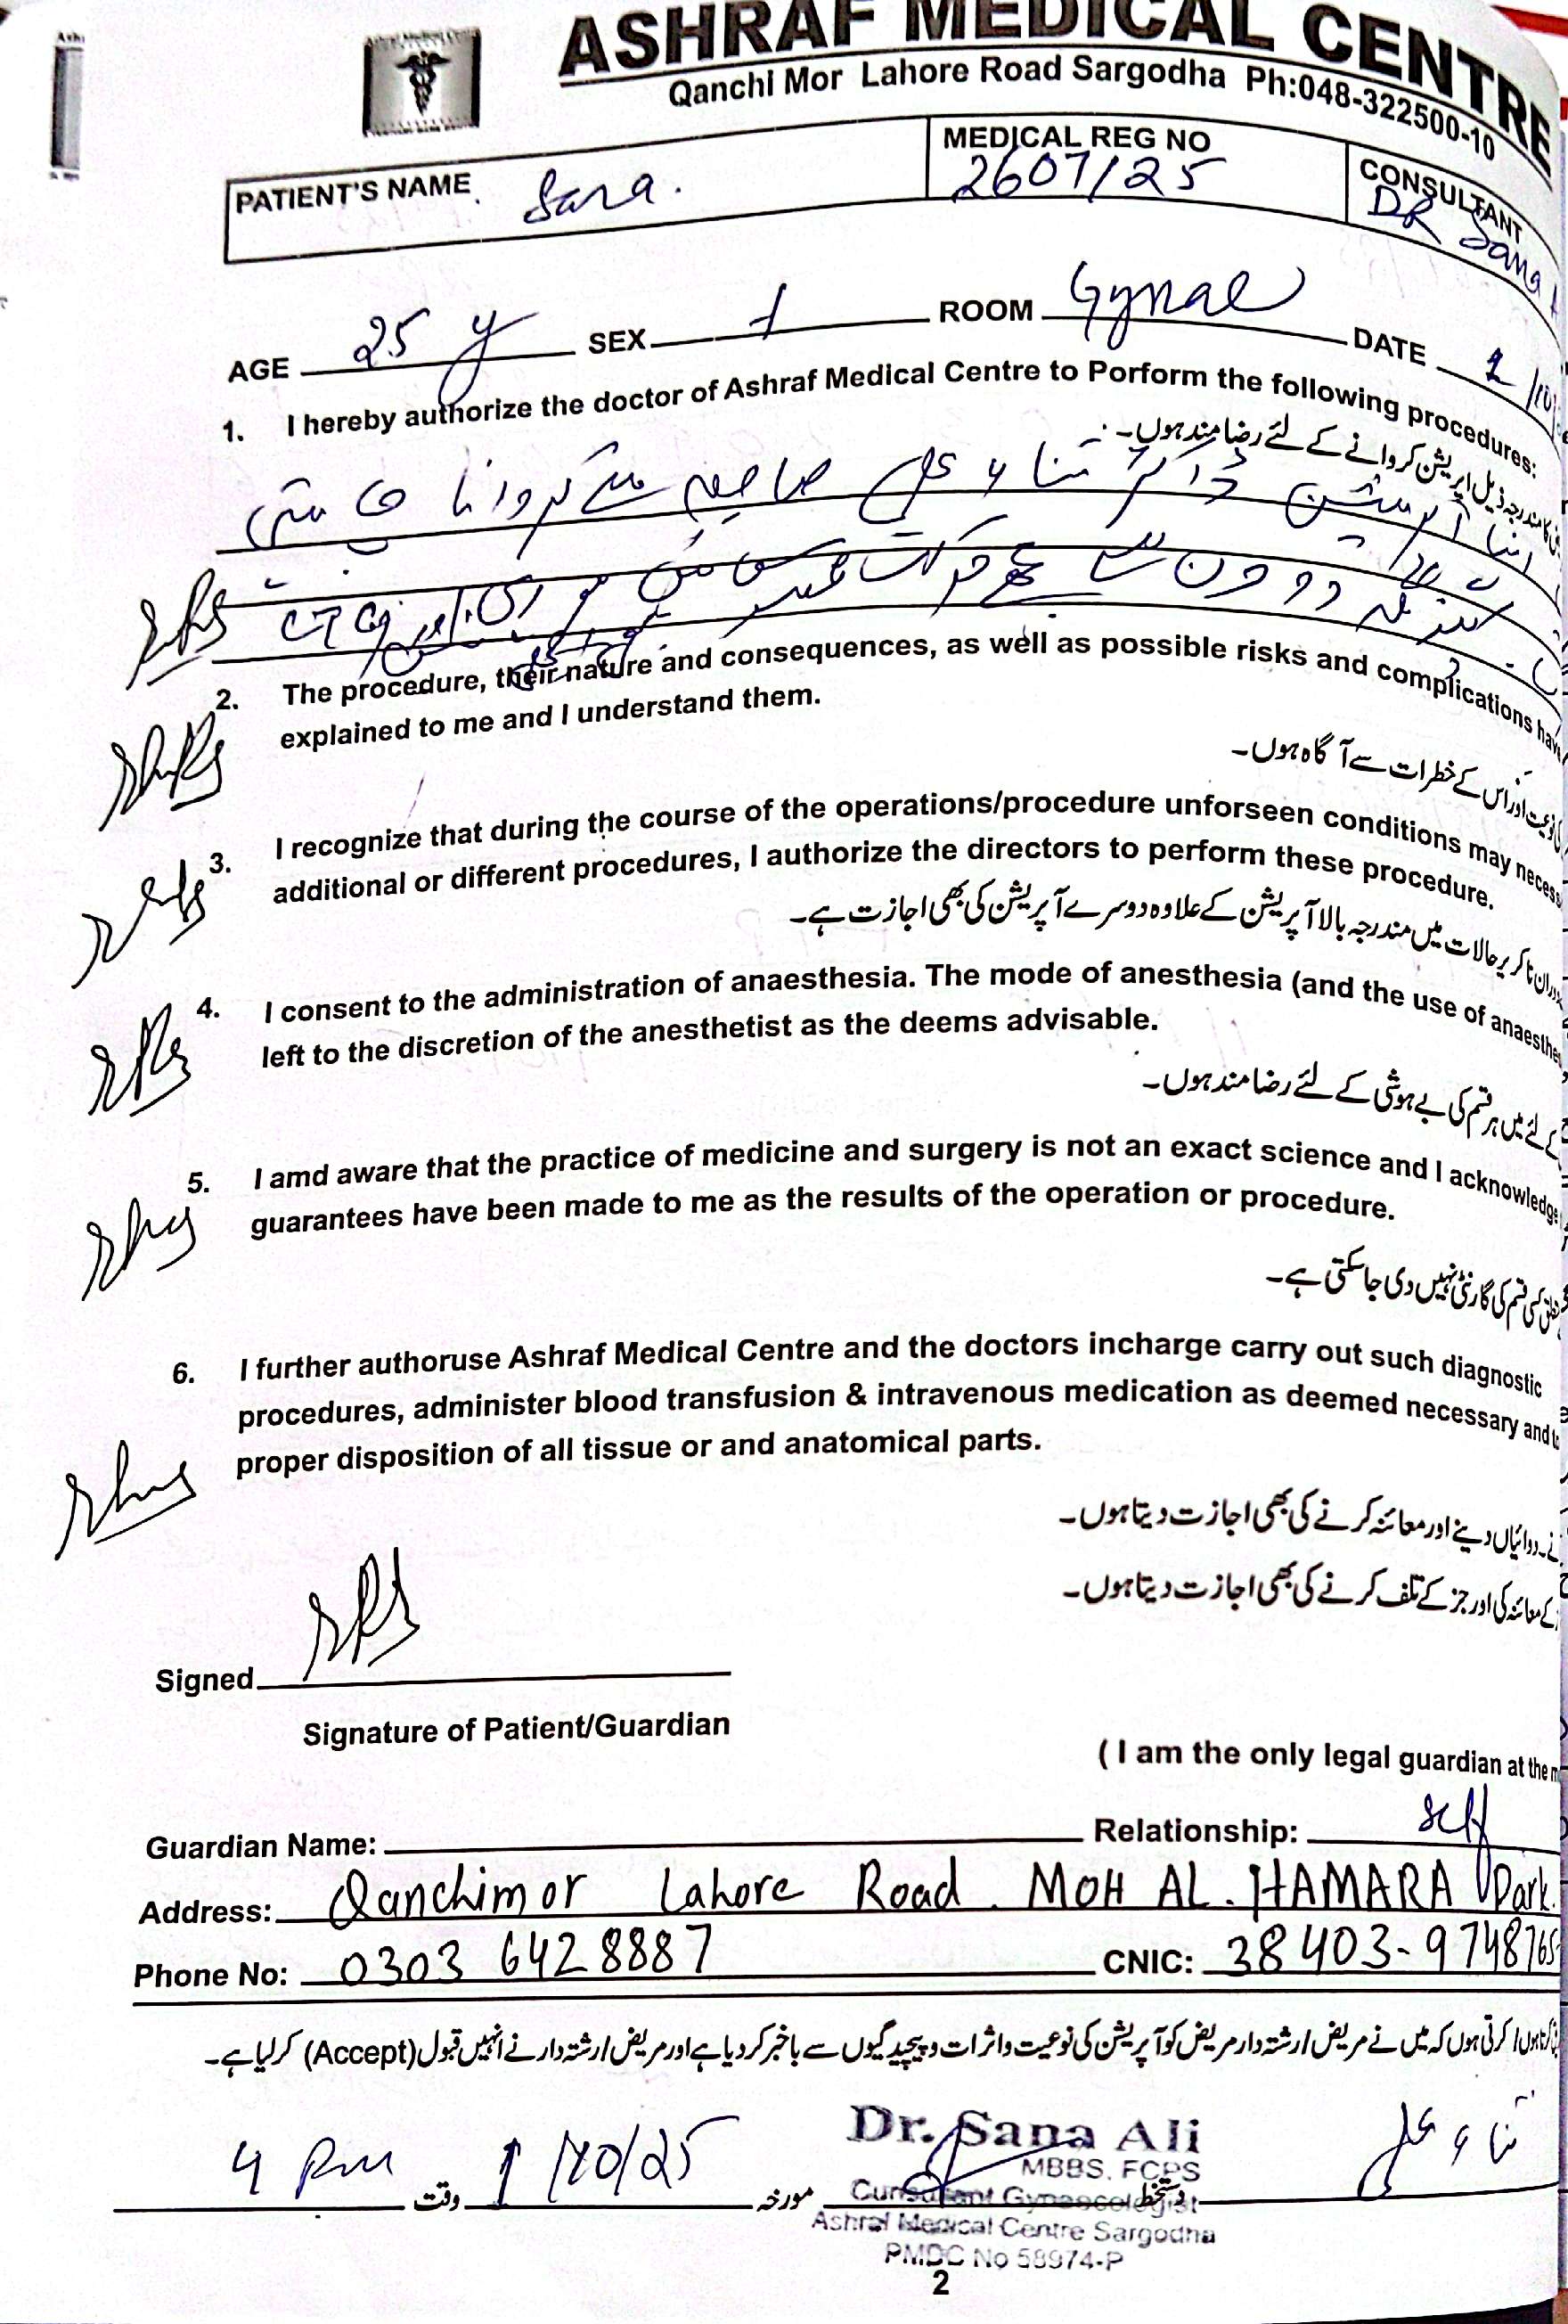 ASHRAF MEDICAL CENTRE
Qanchi Mor Lahore Road Sargodha Ph:048-322500-10
PATIENT'S NAME Sara.
MEDICAL REG NO 2607/25
CONSULTANT DR Sana
AGE 25 y SEX f ROOM Gynae DATE 1/10/
1. I hereby authorize the doctor of Ashraf Medical Centre to Porform the following procedures:
مندرجہ ذیل اپریشن کروانے کے لئے رضامند ہوں۔
اپنا آپریشن ڈاکٹر ثناء علی صاحبہ سے کروانا چاہتی
کیونکہ دو دن سے مجھے حرکت
2. The procedure, their nature and consequences, as well as possible risks and complications have
explained to me and I understand them.
نوعیت اور اس کے خطرات سے آگاہ ہوں۔
3. I recognize that during the course of the operations/procedure unforseen conditions may necess
additional or different procedures, I authorize the directors to perform these procedure.
حالات میں مندرجہ بالا آپریشن کے علاوہ دوسرے آپریشن کی بھی اجازت ہے۔
4. I consent to the administration of anaesthesia. The mode of anesthesia (and the use of anaesthe
left to the discretion of the anesthetist as the deems advisable.
کے لئے میں ہر قسم کی بے ہوشی کے لئے رضامند ہوں۔
5. I amd aware that the practice of medicine and surgery is not an exact science and I acknowledge
guarantees have been made to me as the results of the operation or procedure.
کسی قسم کی گارنٹی نہیں دی جاسکتی ہے۔
6. I further authoruse Ashraf Medical Centre and the doctors incharge carry out such diagnostic
procedures, administer blood transfusion & intravenous medication as deemed necessary and t
proper disposition of all tissue or and anatomical parts.
دوائیاں دینے اور معائنہ کرنے کی بھی اجازت دیتا ہوں۔
کے معائنہ کی اور جز کے تلف کرنے کی بھی اجازت دیتا ہوں۔
Signed
Signature of Patient/Guardian
( I am the only legal guardian at the m
Guardian Name: Relationship: self
Address: Qanchimor Lahore Road. MOH AL. HAMARA Park.
Phone No: 0303 6428887 CNIC: 38403-9748765
کرتی ہوں کہ میں نے مریض/رشتہ دار مریض کو آپریشن کی نوعیت و اثرات و پیچیدگیوں سے باخبر کردیا ہے اور مریض/رشتہ دار نے انہیں قبول (Accept) کرلیا ہے۔
Dr. Sana Ali
MBBS. FCPS
ثناء علی دستخط مورخہ 1/10/25 وقت 4 Pm
Cunsultant Gynaecologist
Ashraf Medical Centre Sargodha
PMDC No 58974-P
2